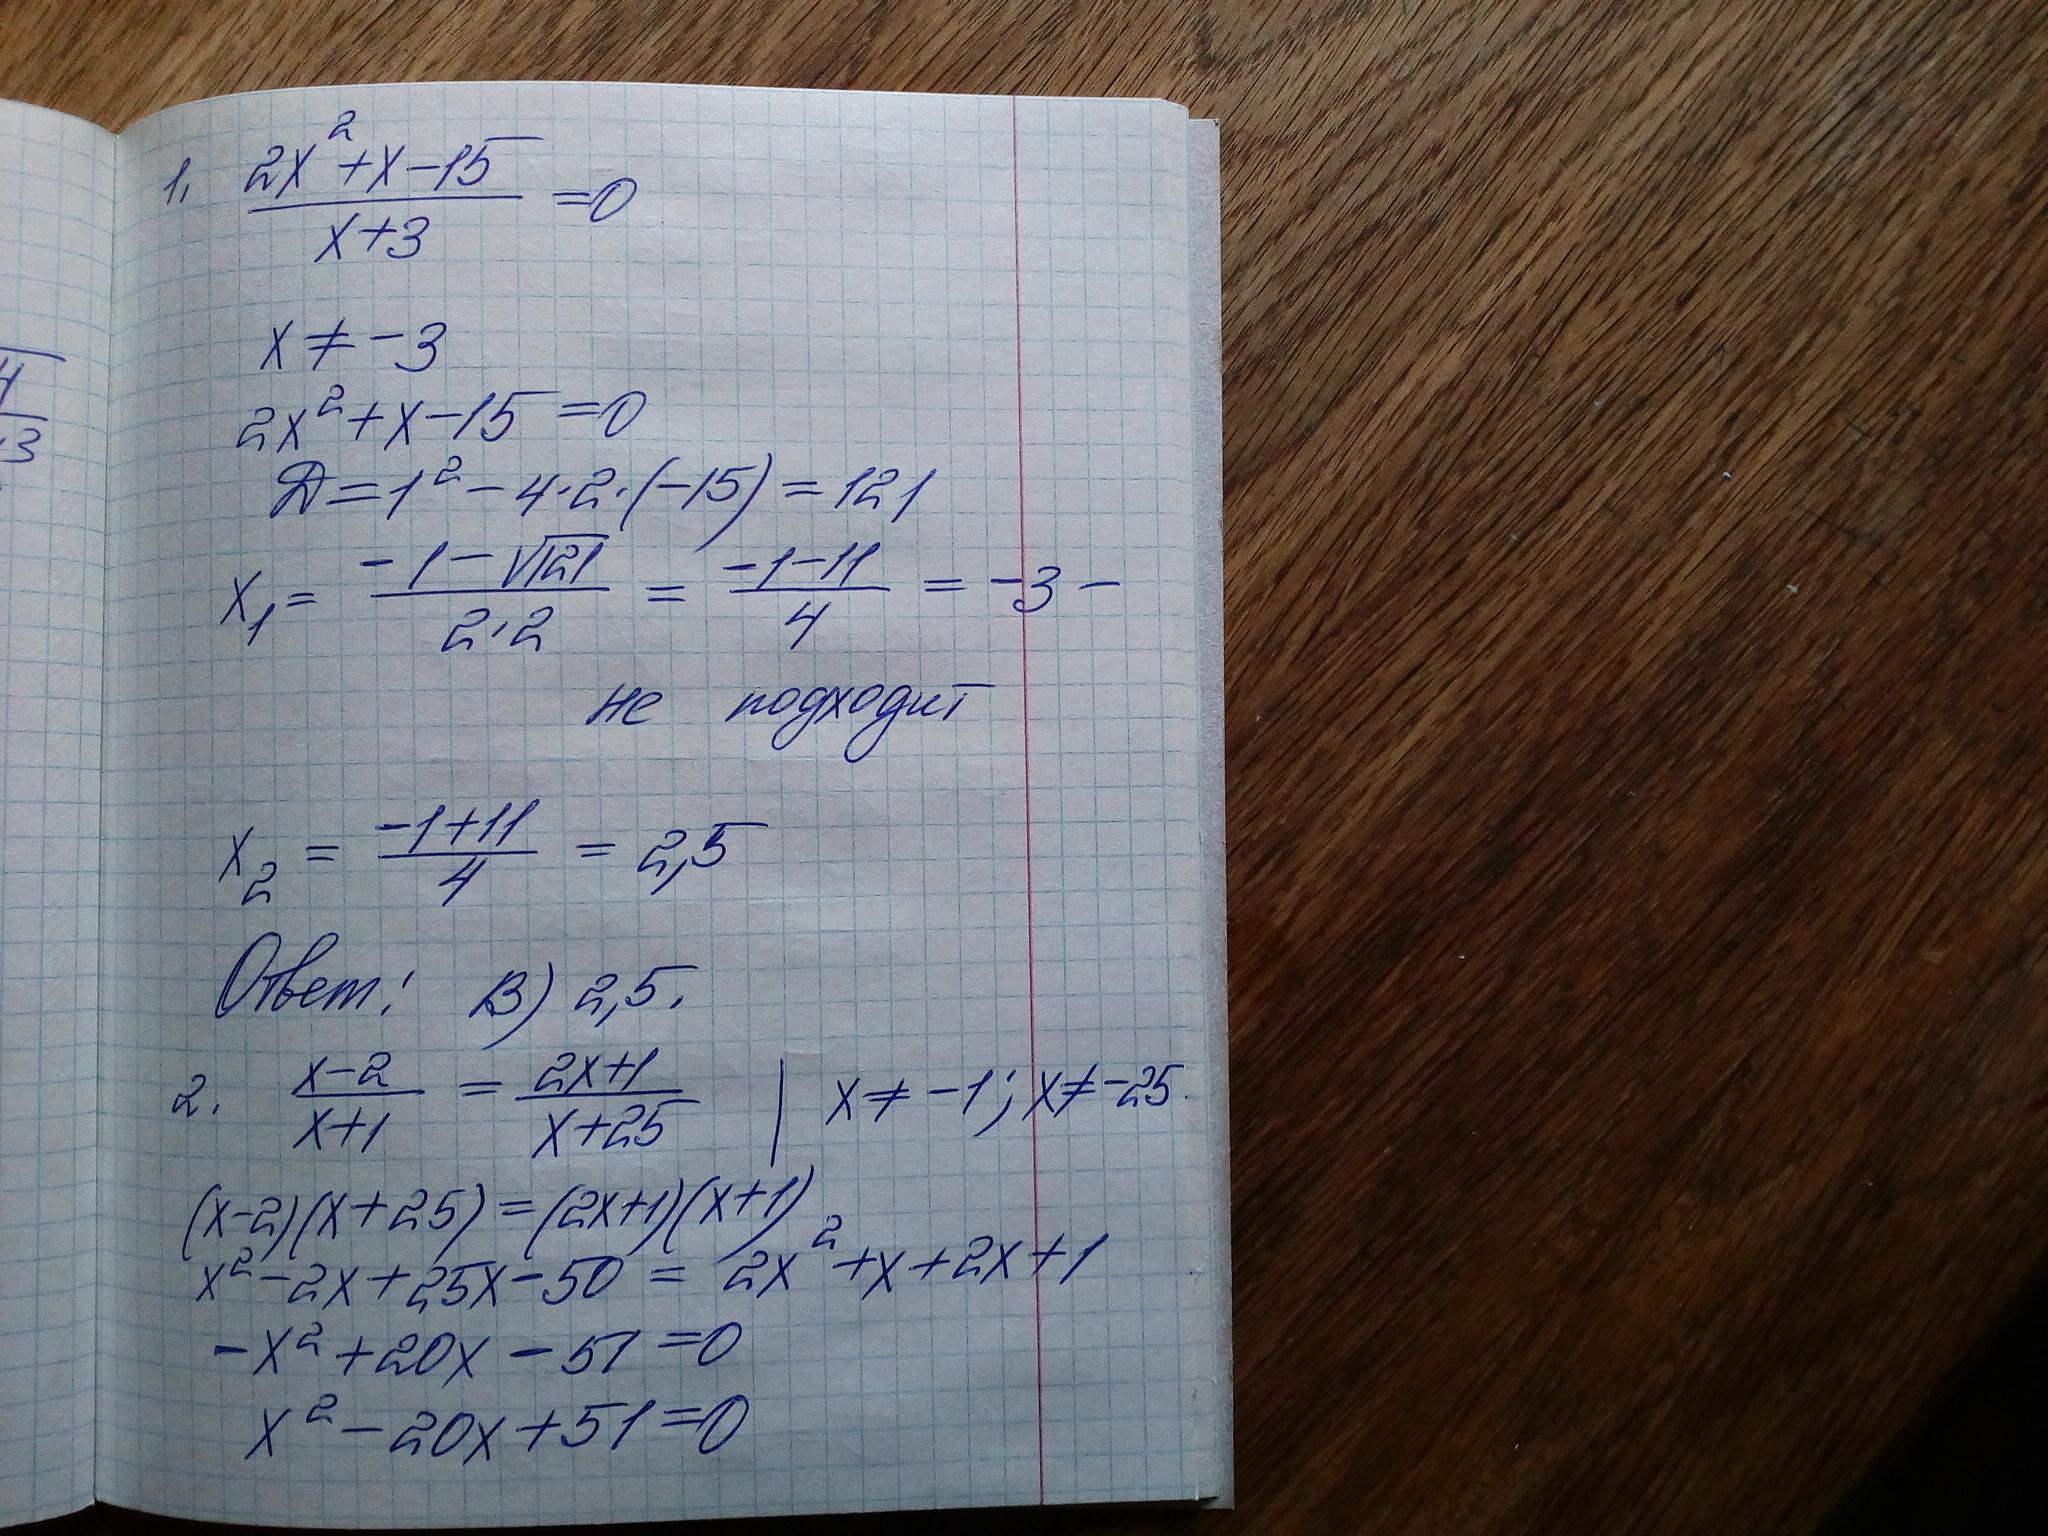 4
13
1. (2x²+x-15)/(x+3) =0
x≠-3
2x²+x-15=0
Д=1²-4·2·(-15)=121
x₁= (-1-√121)/(2·2) = (-1-11)/4 = -3 -
не подходит
x₂ = (-1+11)/4 = 2,5
Ответ: В) 2,5.
2. (x-2)/(x+1) = (2x+1)/(x+25) | x≠-1; x≠-25.
(x-2)(x+25)=(2x+1)(x+1)
x²-2x+25x-50 = 2x²+x+2x+1
-x²+20x-51=0
x²-20x+51=0